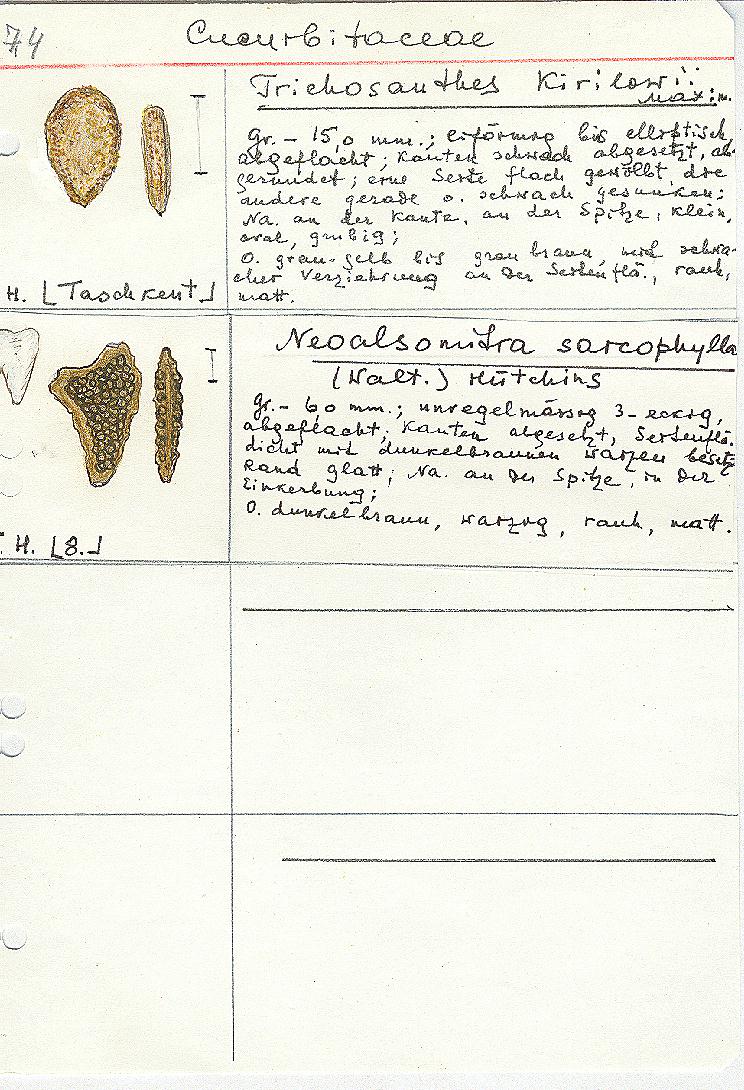 74
Cucurbitaceae
Trichosanthes Kirilowii
Maxim.
Gr. – 15,0 mm.; eiförmig bis elliptisch,
abgeflacht; Kanten schwach abgesetzt, ab-
gerundet; eine Seite flach gewölbt, die
andere gerade o. schwach gesunken;
Na. an der Kante, an der Spitze, klein,
oval, grubig;
O. grau-gelb bis grau braun, mit schwa-
cher Verziehrung an der Seitenflä., rauh,
matt.
H. [Taschkent]
Neoalsomitra sarcophylla
(Wall.) Hutchins
Gr. – 6,0 mm.; unregelmässig 3-eckig,
abgeflacht; Kanten abgesetzt, Seitenflä.
dicht mit dunkelbraunen Warzen besetzt
Rand glatt; Na. an der Spitze, in der
Einkerbung;
O. dunkelbraun, warzig, rauh, matt.
H. [8.]